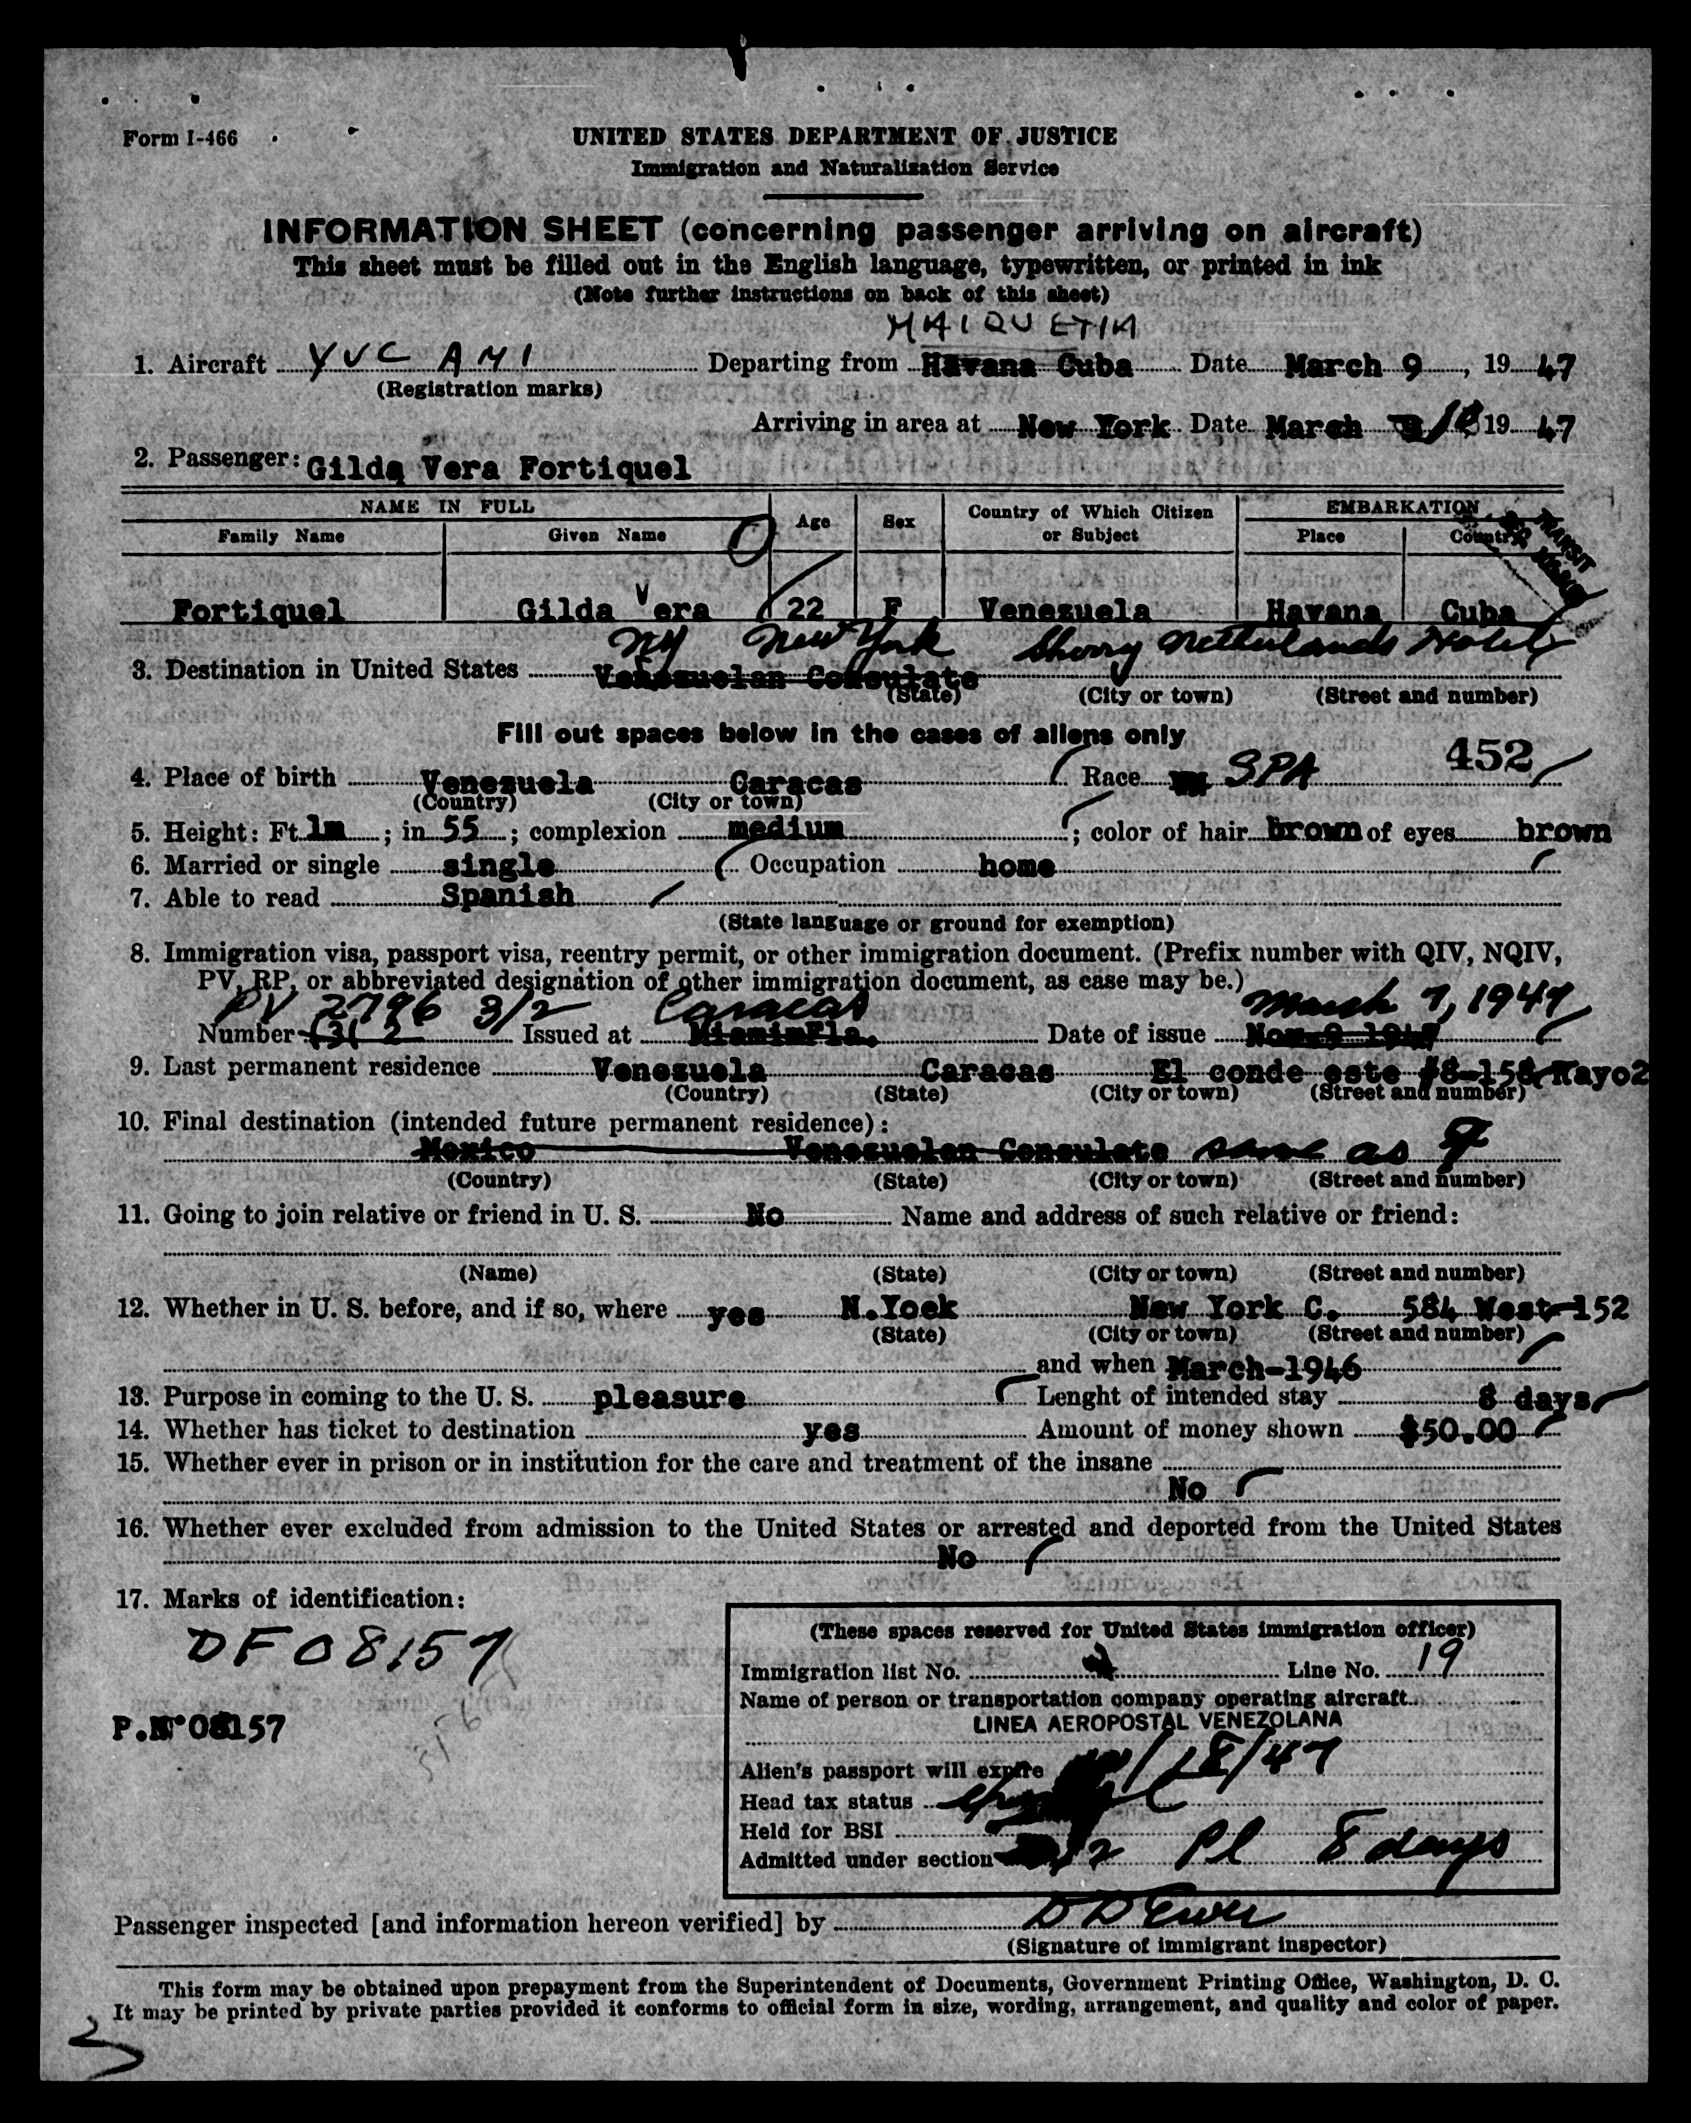 Form I-466
UNITED STATES DEPARTMENT OF JUSTICE
Immigration and Naturalization Service
INFORMATION SHEET (concerning passenger arriving on aircraft)
This sheet must be filled out in the English language, typewritten, or printed in ink
(Note further instructions on back of this sheet)
MAIQUETIA
1. Aircraft YVC AMI Departing from Havana Cuba Date March 9, 1947
(Registration marks)
Arriving in area at New York Date March 10 1947
2. Passenger: Gilda Vera Fortiquel
NAME IN FULL Age Sex Country of Which Citizen or Subject EMBARKATION
Family Name Given Name Place Country
TRANSIT
Fortiquel Gilda Vera 22 F Venezuela Havana Cuba
NY New York Sherry Netherlands Hotel
3. Destination in United States Venezuelan Consulate
(State) (City or town) (Street and number)
Fill out spaces below in the cases of aliens only
452
4. Place of birth Venezuela Caracas Race SPA
(Country) (City or town)
5. Height: Ft. 1m; in 55; complexion medium; color of hair brown of eyes brown
6. Married or single single Occupation home
7. Able to read Spanish
(State language or ground for exemption)
8. Immigration visa, passport visa, reentry permit, or other immigration document. (Prefix number with QIV, NQIV,
PV, RP, or abbreviated designation of other immigration document, as case may be.)
PV 2796 3/2 Caracas March 7, 1947
Number (3( 2 Issued at Miami Fla. Date of issue Nov. 9 194
9. Last permanent residence Venezuela Caracas El conde este #8-158 Kayo2
(Country) (State) (City or town) (Street and number)
10. Final destination (intended future permanent residence):
Mexico Venezuelan Consulate same as 9
(Country) (State) (City or town) (Street and number)
11. Going to join relative or friend in U. S. No Name and address of such relative or friend:
(Name) (State) (City or town) (Street and number)
12. Whether in U. S. before, and if so, where yes N.Yoek New York C. 584 West-152
(State) (City or town) (Street and number)
and when March-1946
13. Purpose in coming to the U. S. pleasure Lenght of intended stay 8 days
14. Whether has ticket to destination yes Amount of money shown $50.00
15. Whether ever in prison or in institution for the care and treatment of the insane
No
16. Whether ever excluded from admission to the United States or arrested and deported from the United States
No
17. Marks of identification:
DF08157
P.Nº08157
(These spaces reserved for United States immigration officer)
Immigration list No. 2 Line No. 19
Name of person or transportation company operating aircraft
LINEA AEROPOSTAL VENEZOLANA
Alien's passport will expire /18/47
Head tax status
Held for BSI
Admitted under section 2 Pl 8 days
Passenger inspected [and information hereon verified] by
(Signature of immigrant inspector)
This form may be obtained upon prepayment from the Superintendent of Documents, Government Printing Office, Washington, D. C.
It may be printed by private parties provided it conforms to official form in size, wording, arrangement, and quality and color of paper.